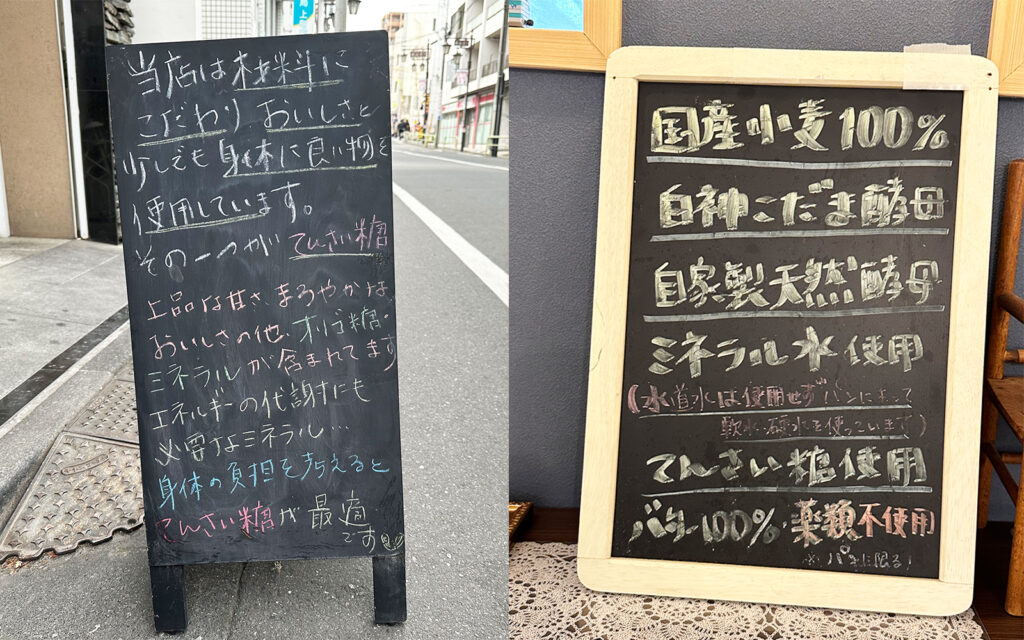 当店は材料に
こだわり おいしさと
少しでも身体に良い物を
使用しています。
その一つが てんさい糖
上品な甘さ、まろやかな
おいしさの他、オリゴ糖・
ミネラルが含まれてます
エネルギーの代謝にも
必要なミネラル…
身体の負担を考えると
てんさい糖が 最適
です
国産小麦100%
白神こだま酵母
自家製天然酵母
ミネラル水使用
(水道水は使用せず パンによって
軟水・硬水を使っています)
てんさい糖使用
バター100% 薬類不使用
※パンに限る